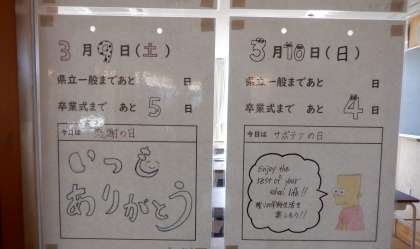 3月9日(土)
県立一般まであと 日
卒業式まで あと 5 日
今日は 感謝の日
いつも
ありがとう
3月10日(日)
県立一般まであと 日
卒業式まで あと 4 日
今日は サボテンの日
Enjoy the
rest of your
school life!!
残りの学校生活を
楽しもう!!